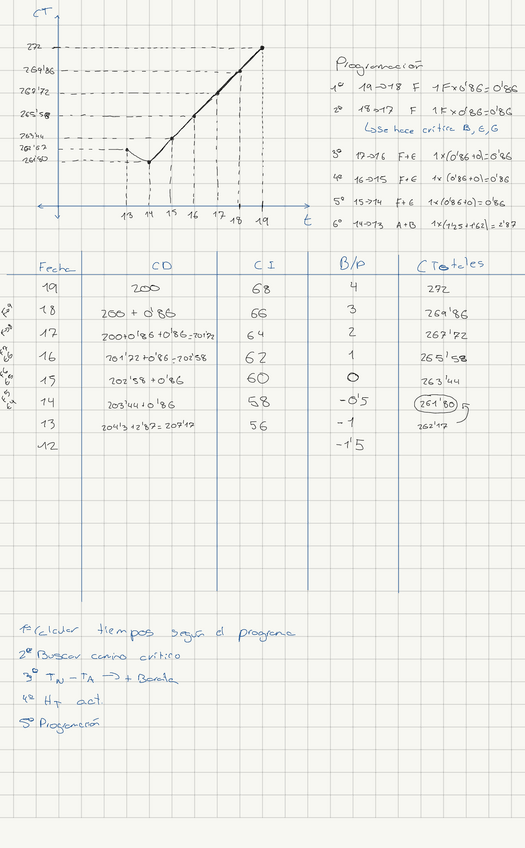 CT
272
269'86
267'72
265'58
263'44
262'17
261'80
13 14 15 16 17 18 19 t
Programación
1º 19->18 F 1F×0'86=0'86
2º 18->17 F 1F×0'86=0'86
Lo se hace crítica B, E, G
3º 17->16 F+E 1×(0'86+0)=0'86
4º 16->15 F+E 1×(0'86+0)=0'86
5º 15->14 F+E 1×(0'86+0)=0'86
6º 14->13 A+B 1×(1'25+1'62)=2'87
Fecha CD CI B/P CTotales
19 200 68 4 272
18 200 + 0'86 66 3 269'86
17 200+0'86+0'86=201'72 64 2 267'72
16 201'72+0'86=202'58 62 1 265'58
15 202'58+0'86 60 0 263'44
14 203'44+0'86 58 -0'5 261'80
13 204'3+2'87=207'17 56 -1 262'17
12 -1'5
1º Calcular tiempos según el programa
2º Buscar camino crítico
3º TN - TA -> + Barata
4º HT act.
5º Programación